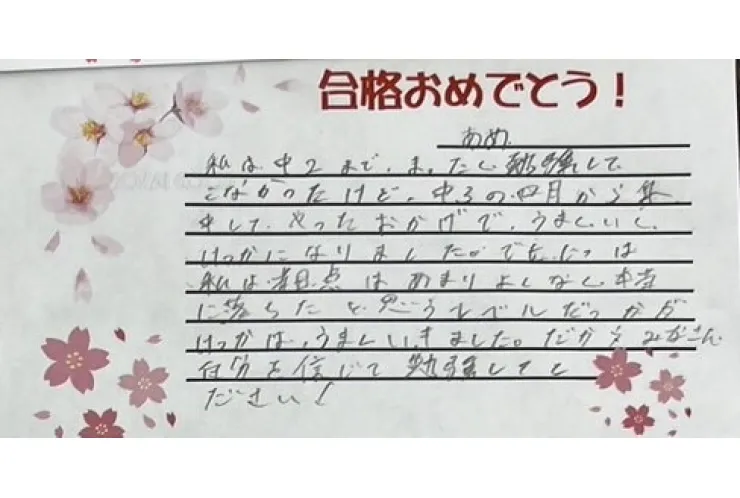 合格おめでとう!
あめ
私は中2まで、まったく勉強して
こなかったけど、中3の四月から集
中して、やったおかげで、うまくいく
けっかになりました。でもじつは
私は着目点はあまりよくなく本当
に落ちたと思うレベルだっかが
けっかは、うまくいきました。だからみなさん
自分を信じて勉強してく
ださい!